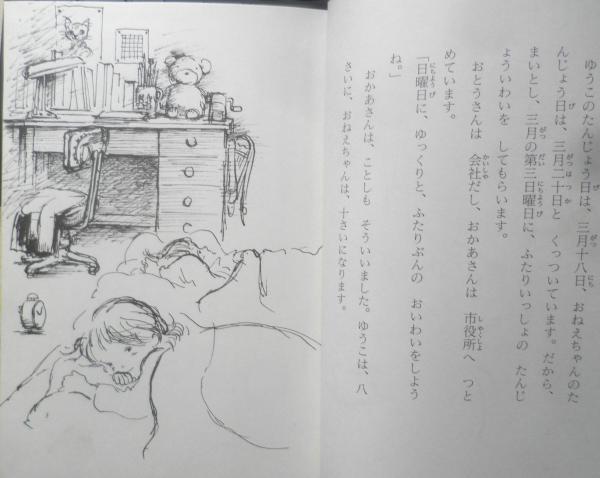 ゆうこのたんじょう日は、三月十八日、おねえちゃんのた
んじょう日は、三月二十日と　くっついています。だから、
まいとし、三月の第三日曜日に、ふたりいっしょの　たんじ
ょういわいを　してもらいます。
おとうさんは　会社だし、おかあさんは　市役所へ　つと
めています。
「日曜日に、ゆっくりと、ふたりぶんの　おいわいをしよう
ね。」
おかあさんは、ことしも　そういいました。ゆうこは、八
さいに、おねえちゃんは、十さいになります。